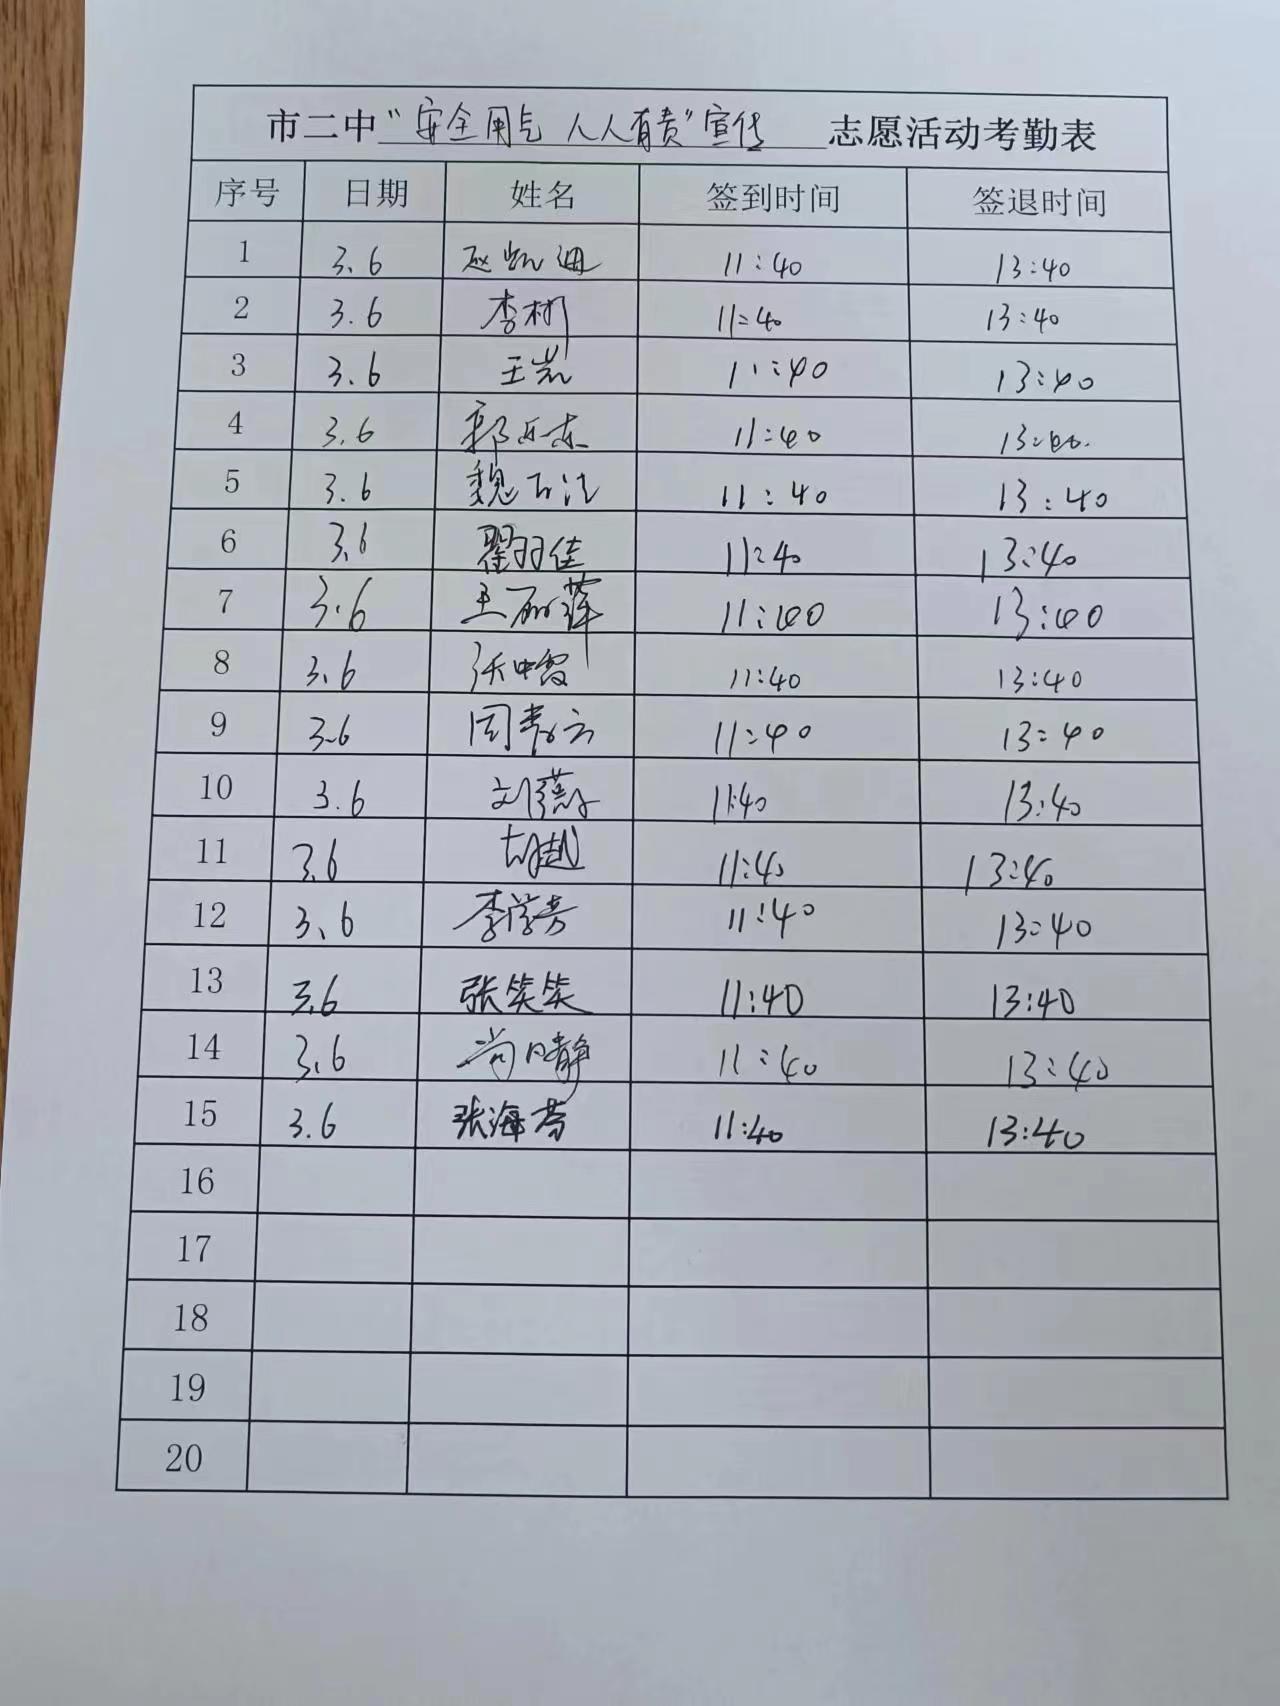 市二中“安全用气 人人有责”宣传 志愿活动考勤表
序号 日期 姓名 签到时间 签退时间
1 3.6 赵凯迪 11:40 13:40
2 3.6 李彬 11:40 13:40
3 3.6 王岚 11:40 13:40
4 3.6 郭 11:40 13:40
5 3.6 魏 11:40 13:40
6 3.6 翟羽佳 11:40 13:40
7 3.6 王丽萍 11:40 13:40
8 3.6 张中霞 11:40 13:40
9 3.6 周春云 11:40 13:40
10 3.6 刘 11:40 13:40
11 3.6 胡越 11:40 13:40
12 3.6 李学芳 11:40 13:40
13 3.6 张笑笑 11:40 13:40
14 3.6 尚静 11:40 13:40
15 3.6 张海芬 11:40 13:40
16
17
18
19
20